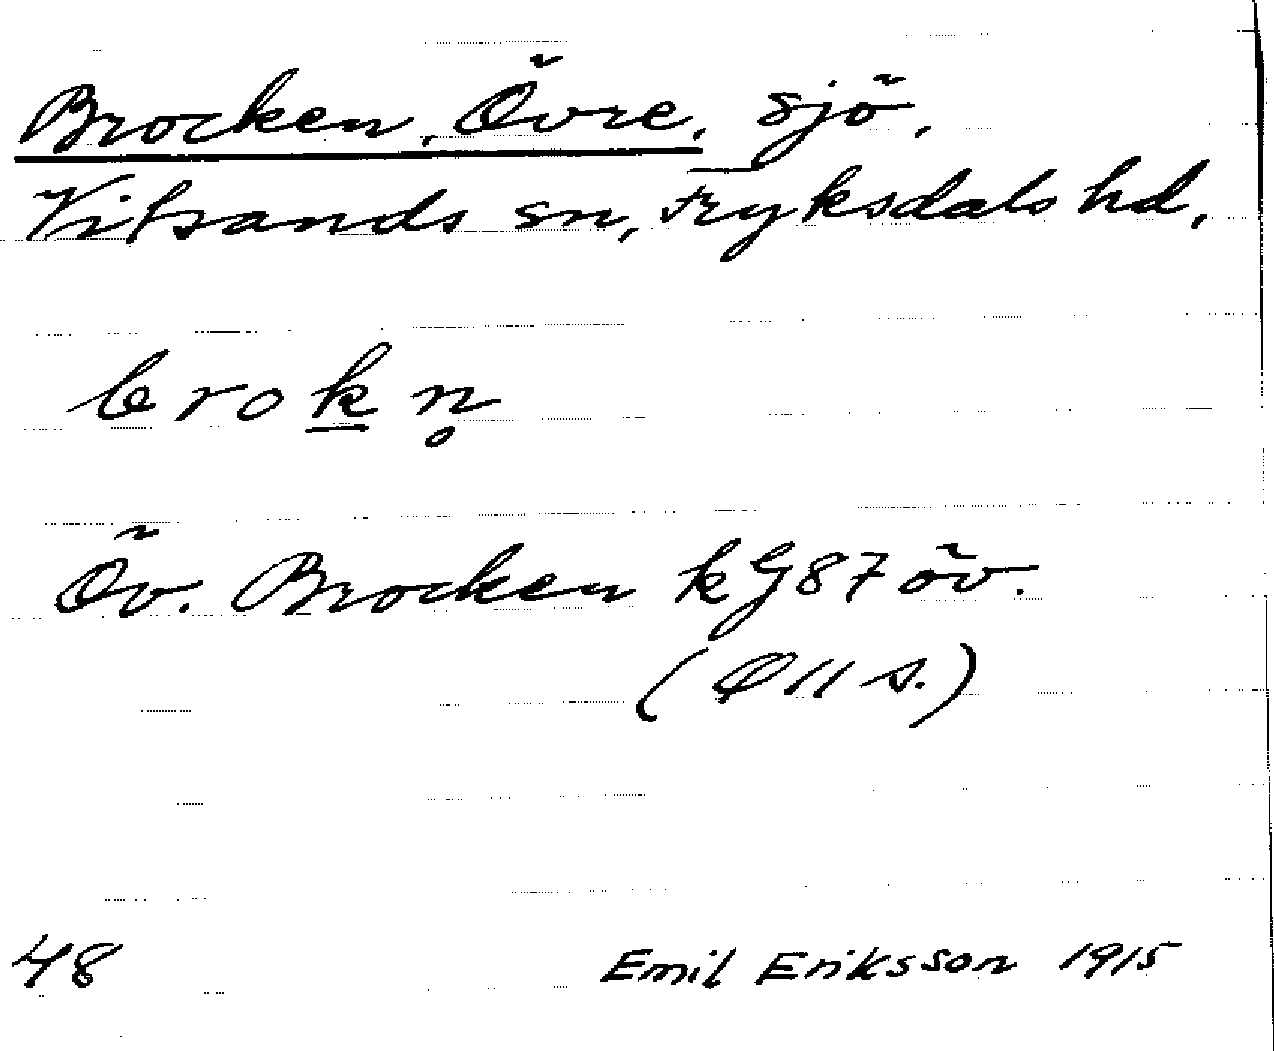 Brocken, Övre, sjö,
Vitsands sn, Fryksdals hd,
brokn̥
Öv. Brocken kG87 öv.
(Ø 11 s.)
48 Emil Eriksson 1915